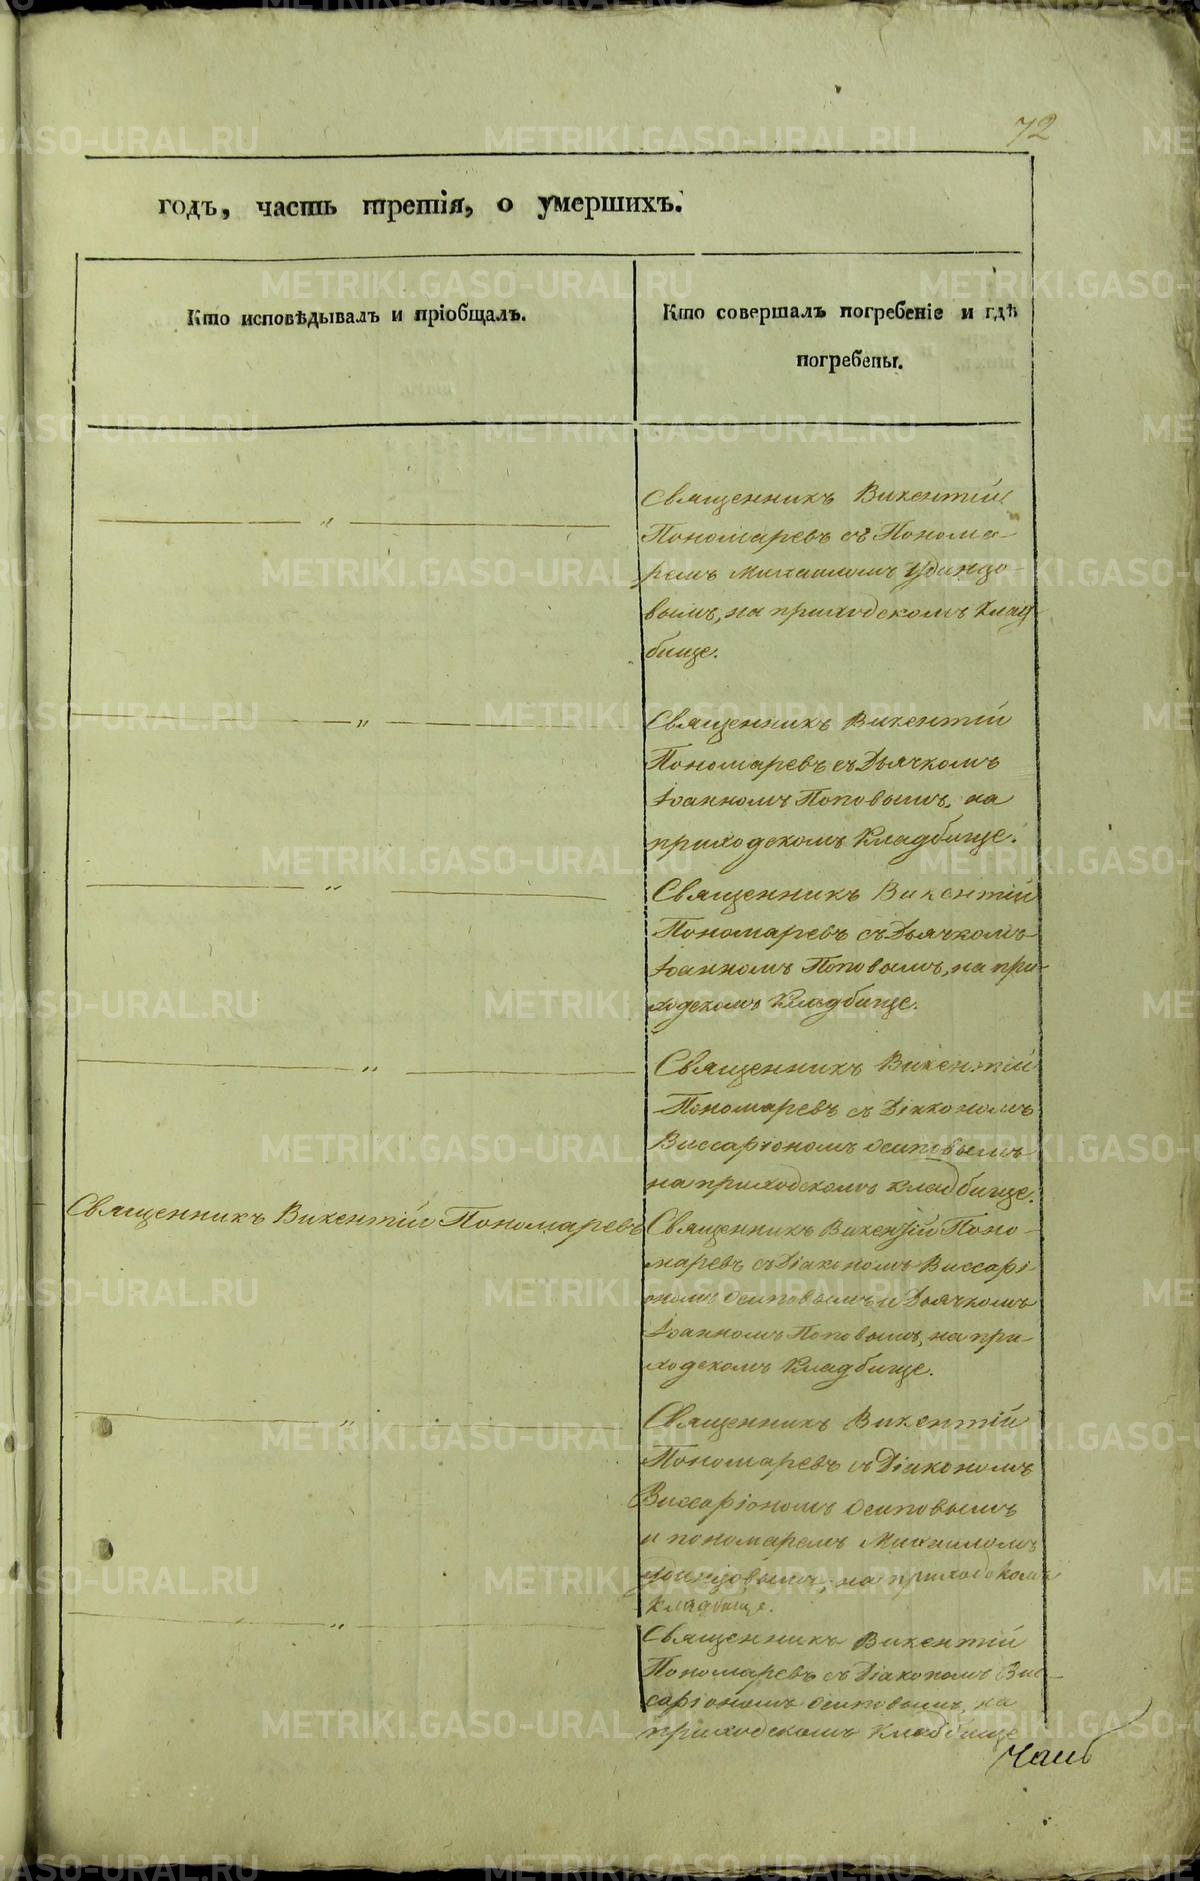 72
годъ, часть третія, о умершихъ.
Кто исповѣдывалъ и пріобщалъ.
Кто совершалъ погребеніе и гдѣ
погребены.
Священникъ Викентій
Пономаревъ съ Понома-
ремъ Михаиломъ Удинцо-
вымъ, на приходскомъ клад
бище.
Священникъ Викентій
Пономаревъ съ Дьячкомъ
Іоанномъ Поповымъ, на
приходскомъ Кладбище.
Священникъ Викентій
Пономаревъ съ Дьячкомъ
Іоанномъ Поповымъ, на при-
ходскомъ Кладбище.
Священникъ Викентій
Пономаревъ съ Діакономъ
Виссаріономъ Осиповымъ
на приходскомъ кладбище.
Священникъ Викентій Пономаревъ
Священникъ Викентій Поно-
маревъ съ Діакономъ Виссарі-
ономъ Осиповымъ и Дьячкомъ
Іоанномъ Поповымъ, на при-
ходскомъ Кладбище.
Священникъ Викентій
Пономаревъ съ Діакономъ
Виссаріономъ Осиповымъ
и пономаремъ Михаиломъ
Удинцовымъ, на приходскомъ
Кладбище.
Священникъ Викентій
Пономаревъ съ Діакономъ Вис-
саріономъ Осиповымъ, на
приходскомъ Кладбище
METRIKI.GASO-URAL.RU